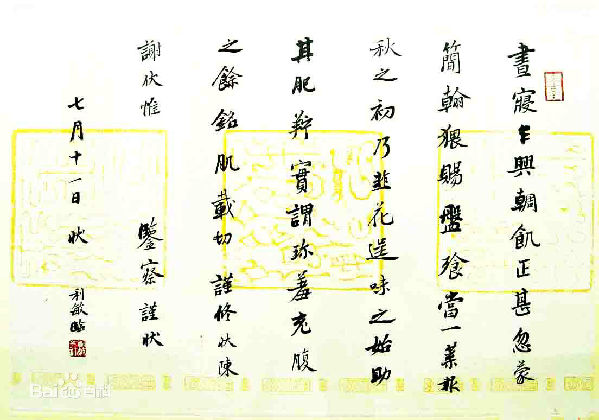 晝寢乍興輖飢正甚忽蒙
簡翰猥賜盤飧當一葉報
秋之初乃韭花逞味之始助
其肥羜實謂珍羞充腹
之餘銘肌載切謹修狀陳
謝伏惟 鑒察謹狀
七月十一日 狀
利敏臨
Baidu百科